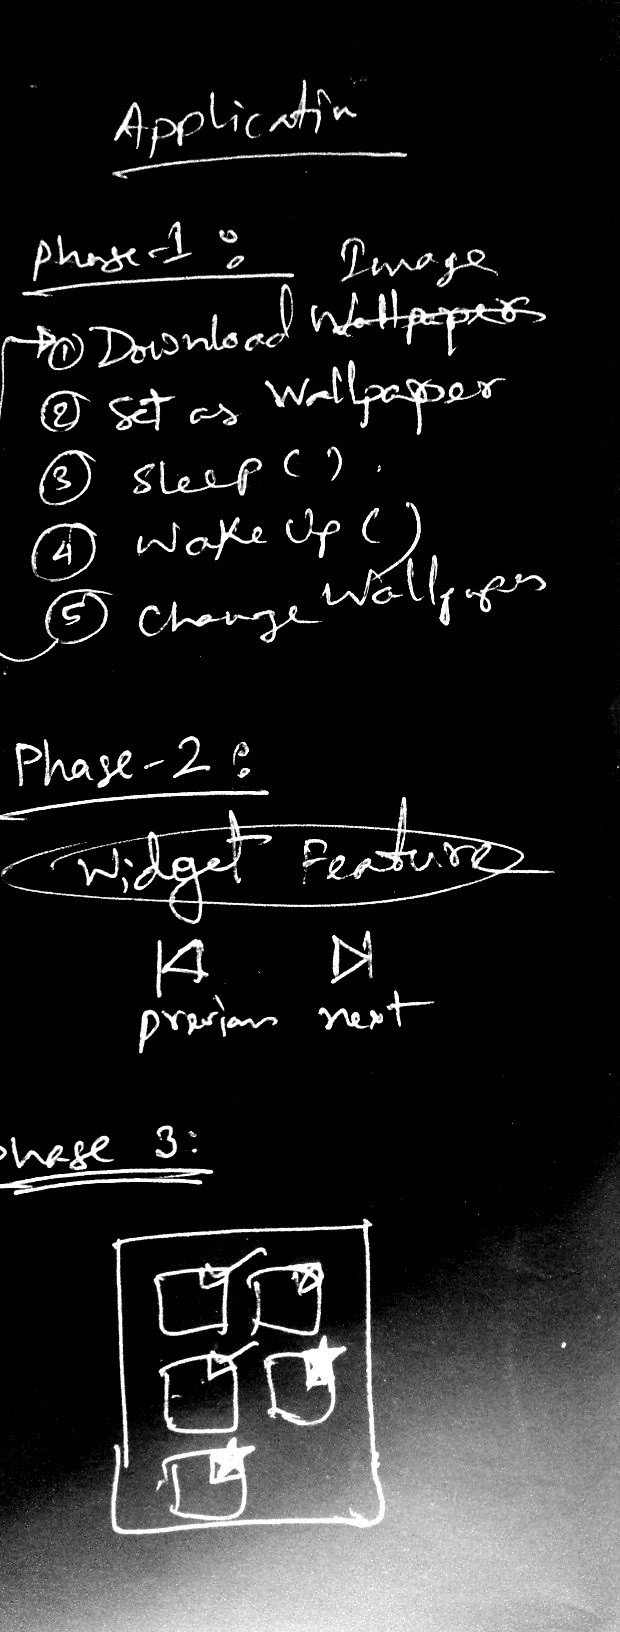 Application
Phase-1 : Image
① Download Wallpapers
② Set as Wallpaper
③ Sleep ( ) .
④ Wake Up ( )
⑤ Change Wallpaper
Phase-2 :
Widget Feature
previous next
phase 3: